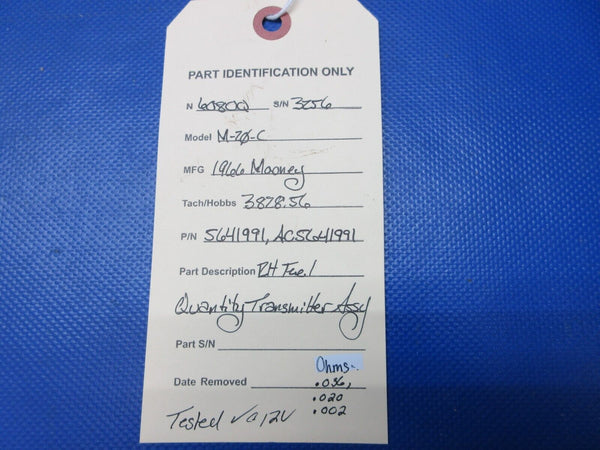 PART IDENTIFICATION ONLY
N 6080Q S/N 3256
Model M-20-C
MFG 1966 Mooney
Tach/Hobbs 3828.56
P/N 5641991, AC5641991
Part Description RH Fuel
Quantity Transmitter Assy
Part S/N
Ohms
Date Removed .036,
.020
.002
Tested @ 12V